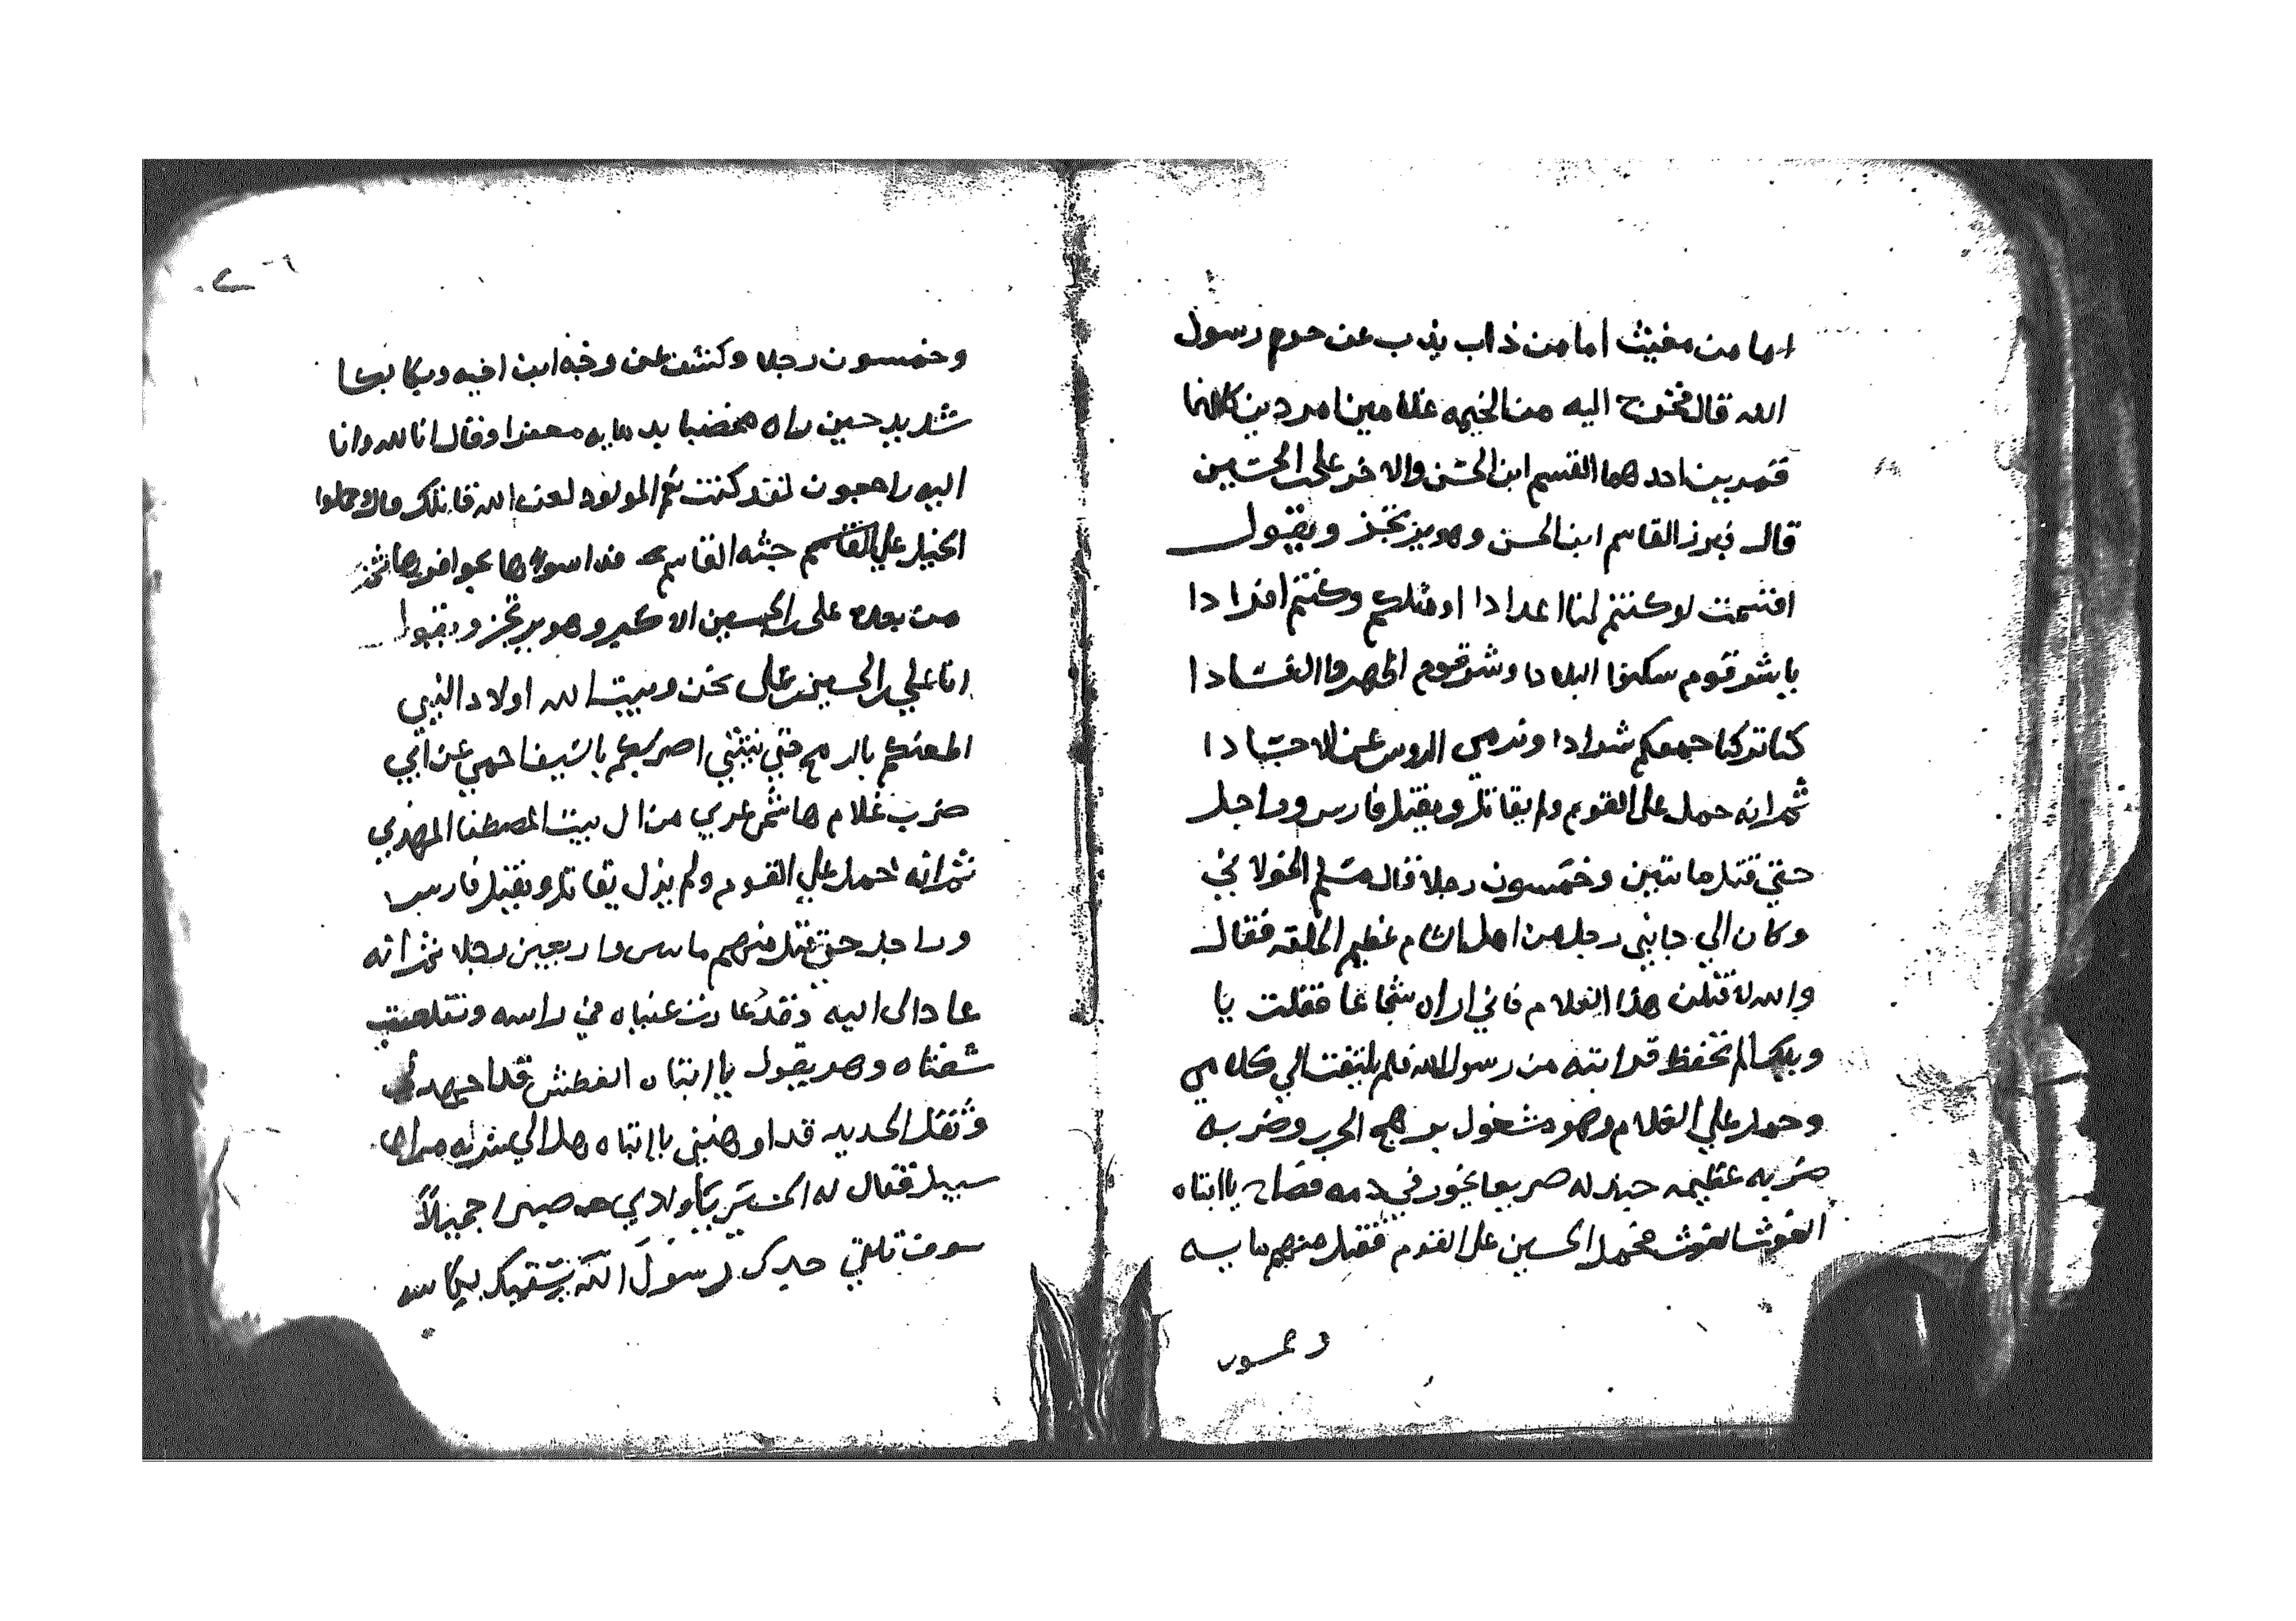 اما من مغيث اما من ذاب يذب عن حرم رسول
الله قال فخرج اليه من الخيمه غلامين امردين كانما
قمرين احدهما القسم ابن الحسن والاخر على الحسين
قال فبرز القاسم ابن الحسن وهو يرتجز ويقول
اقسمت لو كنتم لنا اعدادا او مثلكم وكنتم افرادا
يا شر قوم سكنوا البلادا وشر قوم اظهروا الفسادا
كنا تركنا جمعكم شرادا ونرمي الروس عن الاجسادا
ثم انه حمل على القوم ولم يقاتل ويقتل فارس وراجل
حتي قتل مائتين وخمسون رجلا قال مسلم الخولاني
وكان الي جانبي رجل من اهل الشام عظيم الخلقه فقال
والله لاقتلن هذا الغلام فاني اراه شجاعا فقلت يا
ويلك الم تحفظ قرابته من رسول الله فلم يلتفت الي كلامي
وحمل علي الغلام وهو مشغول بوهج الحرب وضربه
ضربه عظيمه جندله صريعا يخور في دمه فصاح يا ابتاه
الغوث الغوث فحمل الحسين على القوم فقتل منهم مايه
وخمسون
وخمسون رجلا وكشف عن وجه ابن اخيه وبكا بكا
شديد حين راه مخضبا بدمايه معفرا وقال انا لله وانا
اليه راجعون لقد كنت نعم المولود لعن الله قاتلك قال فحملوا
الخيل علي القاسم جثه القاسم فداسوها بحوافرها ثم برز
من بعده على الحسين الاكبر وهو يرتجز ويقول
انا علي الحسين على نحن وبيت الله اولاد النبي
اطعنكم بالرمح حتي ينثني اضربكم بالسيف احمي عن ابي
ضرب غلام هاشمي عربي من ال بيت المصطفا المهدي
ثم انه حمل علي القوم ولم يزل يقاتل ويقتل فارس
وراجل حتي قتل منهم مايه واربعين رجلا ثم انه
عاد الى ابيه وقد غارت عيناه في راسه وتقلصت
شفتاه وهو يقول يا ابتاه العطش قد اجهدني
وثقل الحديد قد اوهنني يا ابتاه هل الي شربه من الماء
سبيل فقال له الحسين يا ولدي صبرا جميلا
سوف تلقي جدك رسول الله يسقيك بكاسه